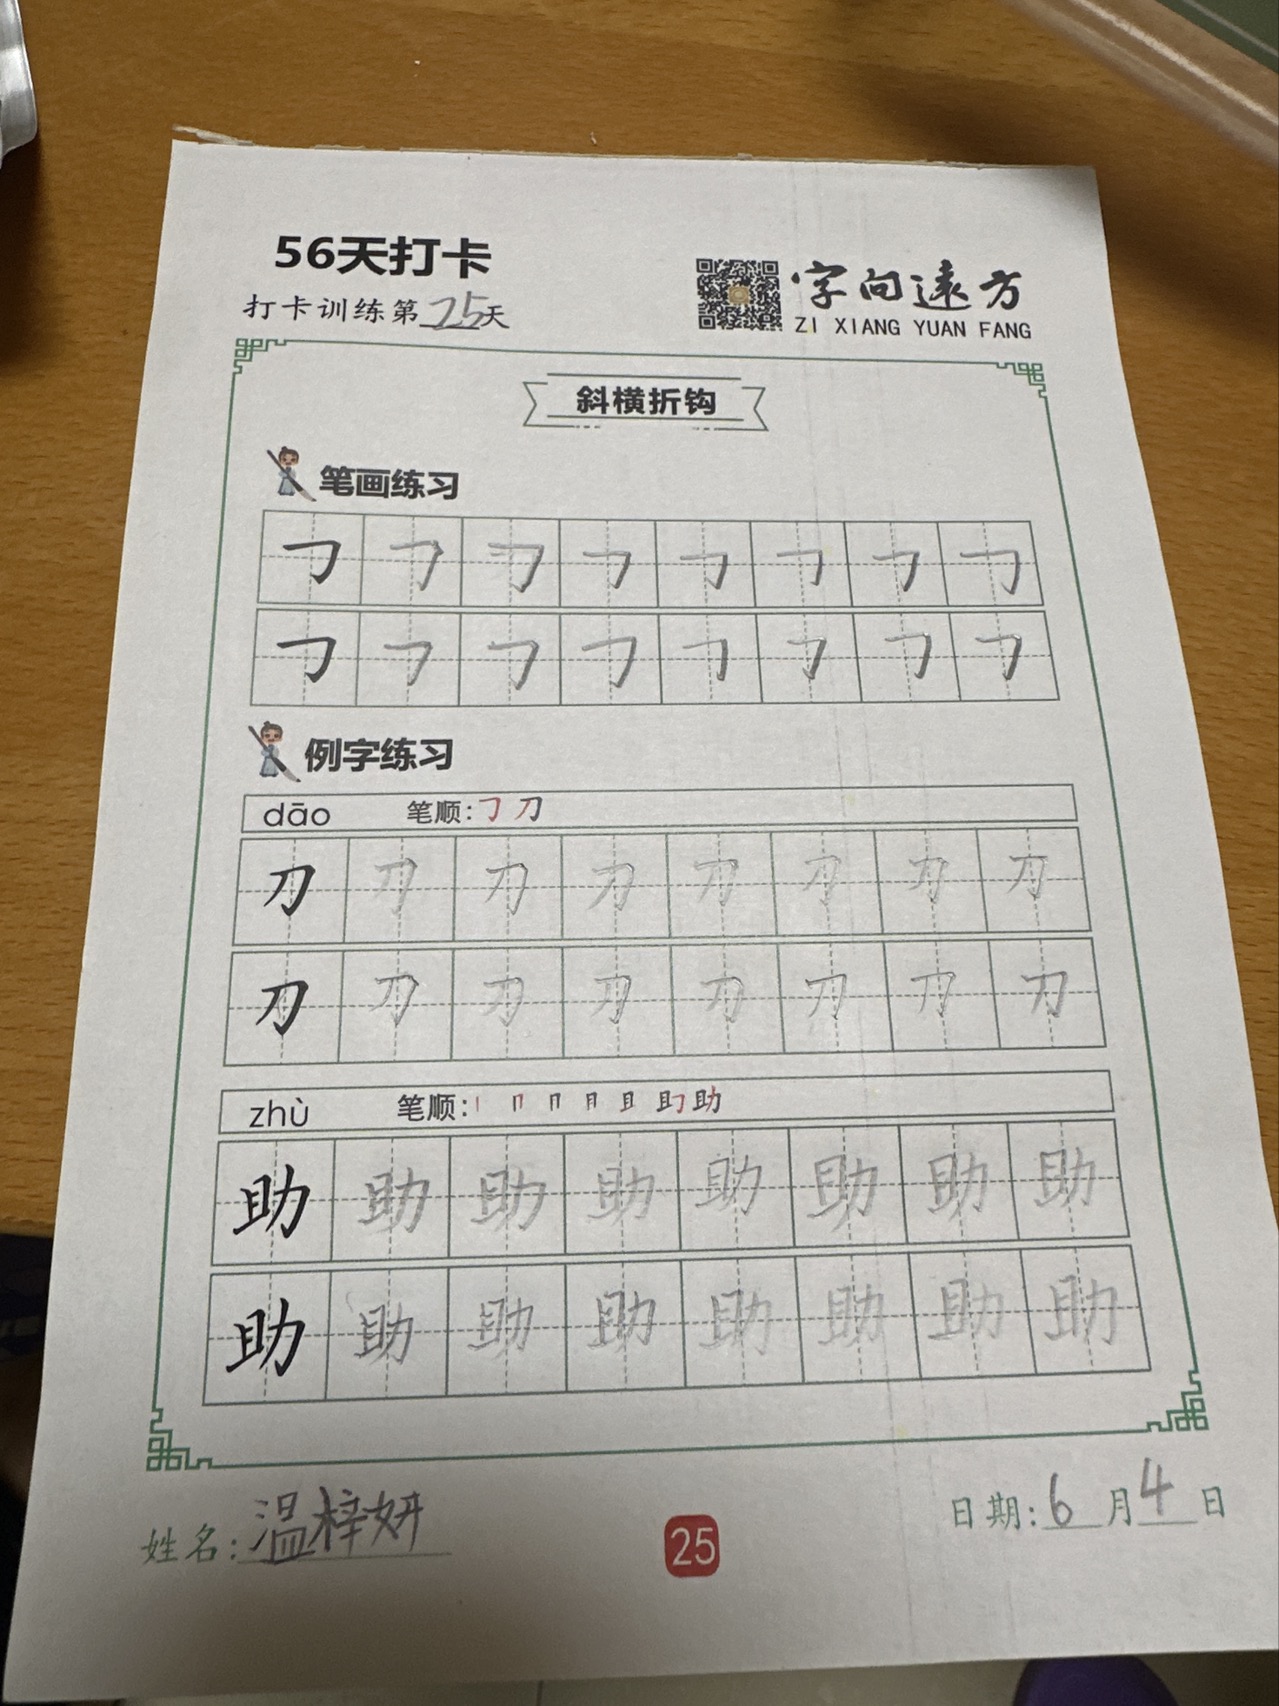 56天打卡
打卡训练第25天
字向远方
ZI XIANG YUAN FANG
斜横折钩
笔画练习
𠃌 𠃌 𠃌 𠃌 𠃌 𠃌 𠃌 𠃌
𠃌 𠃌 𠃌 𠃌 𠃌 𠃌 𠃌 𠃌
例字练习
dāo 笔顺：𠃌 刀
刀 刀 刀 刀 刀 刀 刀 刀
刀 刀 刀 刀 刀 刀 刀 刀
zhù 笔顺：丨 冂 冂 月 且 助 助
助 助 助 助 助 助 助 助
助 助 助 助 助 助 助 助
姓名：温梓妍
25
日期：6月4日